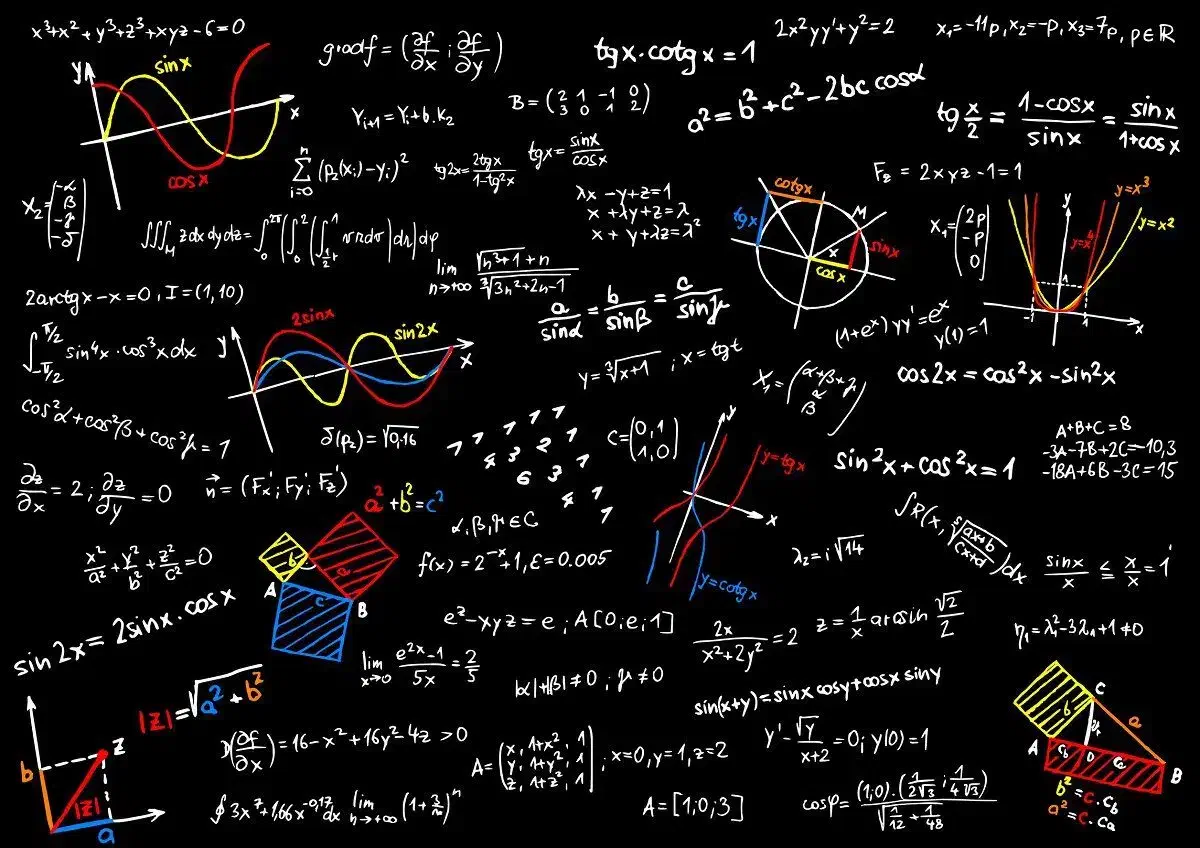 x³+x² + y³+z³+xyz-6=0
y
sinx
x
cosx
gradf = (∂f/∂x ; ∂f/∂y)
tgx·cotgx = 1
2x²yy'+y²=2
x₁=-11p, x₂=-p, x₃=7p, p∈ℝ
Y_{i+1} = Y_i + b·k₂
B = (2 1 -1 0
3 0 1 2)
a² = b² + c² - 2bc cosα
tg x/2 = (1-cosx)/sinx = sinx/(1+cosx)
∑_{i=0}^{n} (p₂(x_i)-y_i)²
tg2x = 2tgx/(1-tg²x)
tgx = sinx/cosx
F_z = 2xyz-1=1
X₂ = (-α
β
-γ
-δ)
∭_M z dx dy dz = ∫₀^{2π}(∫₀²(∫_{½r}^1
λx - y+z=1
x + λy+z=λ
x + y+λz=λ²
cotgx
tgx
M
sinx
x
cosx
X₁ = (2p
-p
0)
y
y=x³
y=x²
y=x⁴
1
-1
1
x
lim_{n→+∞} √(n³+1)+n / ∛(3n²+2n-1)
2arctgx-x=0, I=(1,10)
a/sinα = b/sinβ = c/sinγ
(1+e^x)yy'=e^x
y(1)=1
∫_{-π/2}^{π/2} sin⁴x·cos³x dx
y
2sinx
sin2x
x
y=∛(x+1) ; x=tgt
X₁ = (α+β+γ
α
β)
cos2x = cos²x - sin²x
cos²α+cos²β+cos²γ=1
δ(p₂)=√0,16
1 1 1 1 1
4 3 2 1
6 3 1
4 1
1
C=(0,1
1,0)
y
y=tgx
x
y=cotgx
sin²x+cos²x=1
A+B+C=8
-3A-7B+2C=-10,3
-18A+6B-3C=15
∂z/∂x = 2 ; ∂z/∂y = 0
n⃗ = (F_x'; F_y'; F_z')
a² + b² = c²
α,β,γ∈C
b
a
c
A
B
x²/a² + y²/b² + z²/c² = 0
f(x) = 2^{-x}+1, ε=0.005
λ₂=i√14
sinx/x ≦ x/x = 1
sin2x = 2sinx·cosx
e^z-xyz=e ; A[0;e;1]
2x/(x²+2y²) = 2
z = 1/x arcsin √2/2
η₁=λ₁²-3λ₁+1≠0
lim_{x→0} (e^{2x}-1)/5x = 2/5
|α|+|β|≠0 ; γ≠0
sin(x+y)=sinx cosy+cosx siny
|Z|=√(a²+b²)
b
z
|Z|
a
(∂f/∂x) = 16-x²+16y²-4z > 0
A = (x, 1+x², 1
y, 1+y², 1
z, 1+z², 1) ; x=0, y=1, z=2
y' - √y/(x+2) = 0; y(0)=1
∮3x⁷+1,66x^{-0,17}dx
A=[1;0;3]
cosφ = (1;0)·(1/(2√3) ; 1/(4√3)) / √(1/12 + 1/48)
C
b
a
A
D
B
b²=c·c_b
a²=c·c_a